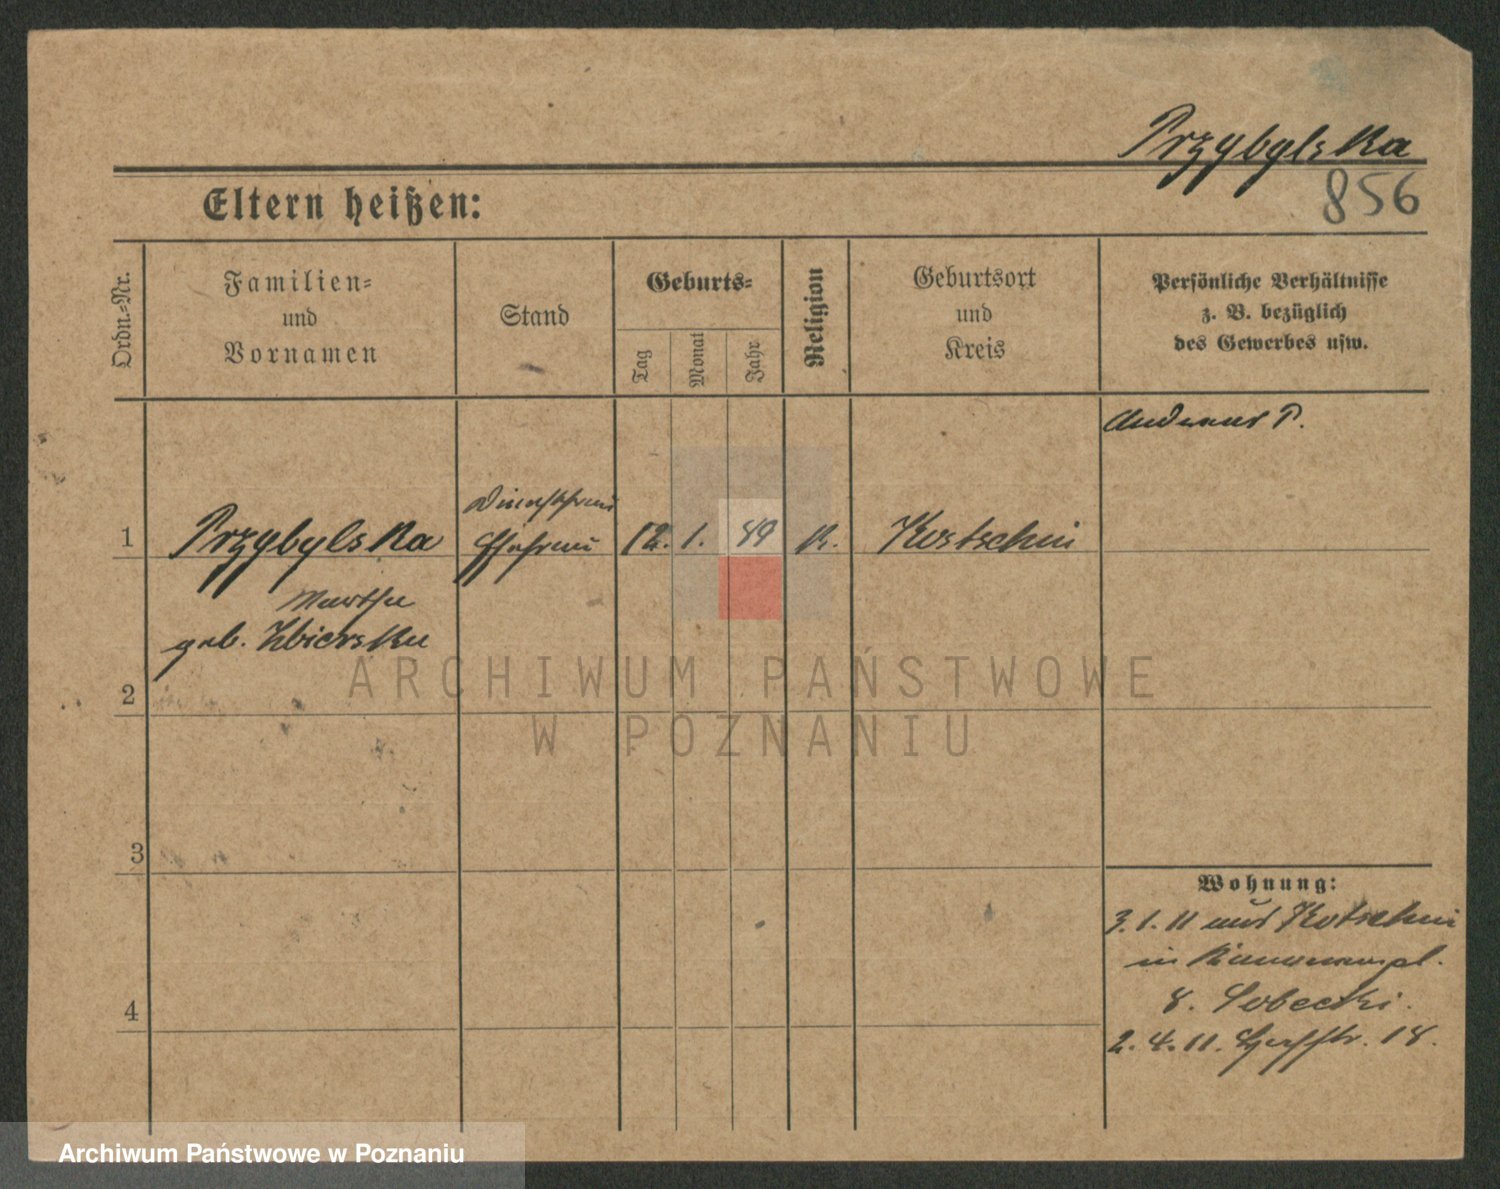 Przybylska
856
Eltern heißen:
Ordn.-Nr.
Familien=
und
Vornamen
Stand
Geburts=
Tag
Monat
Jahr
Religion
Geburtsort
und
Kreis
Persönliche Verhältnisse
z. B. bezüglich
des Gewerbes usw.
Andreas P.
1
Przybylska
Ehefrau
12. 1. 49
K.
Kostschin
Martha
geb. Zbierska
2
3
4
Wohnung:
3.1.11 aus Kotschin
in
8. Sobecki.
2.4.11. 18.
ARCHIWUM PAŃSTWOWE
W POZNANIU
Archiwum Państwowe w Poznaniu